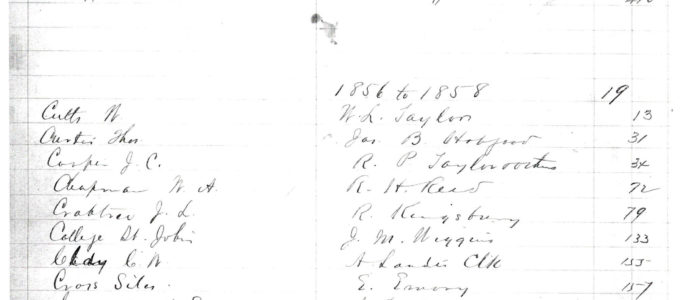 1856 to 1858 19
Cutts W W. L. Taylor 13
Curtis Thos Jas B. Hobgood 31
Cooper J. C. R. P. Taylor 34
Chapman W. A. R. H. Read 72
Crabtree J. L. R. Kingsbury 79
College St. Johns J. M. Wiggins 133
C W A Landis Clk 155
Cross Silas E. Emory 157